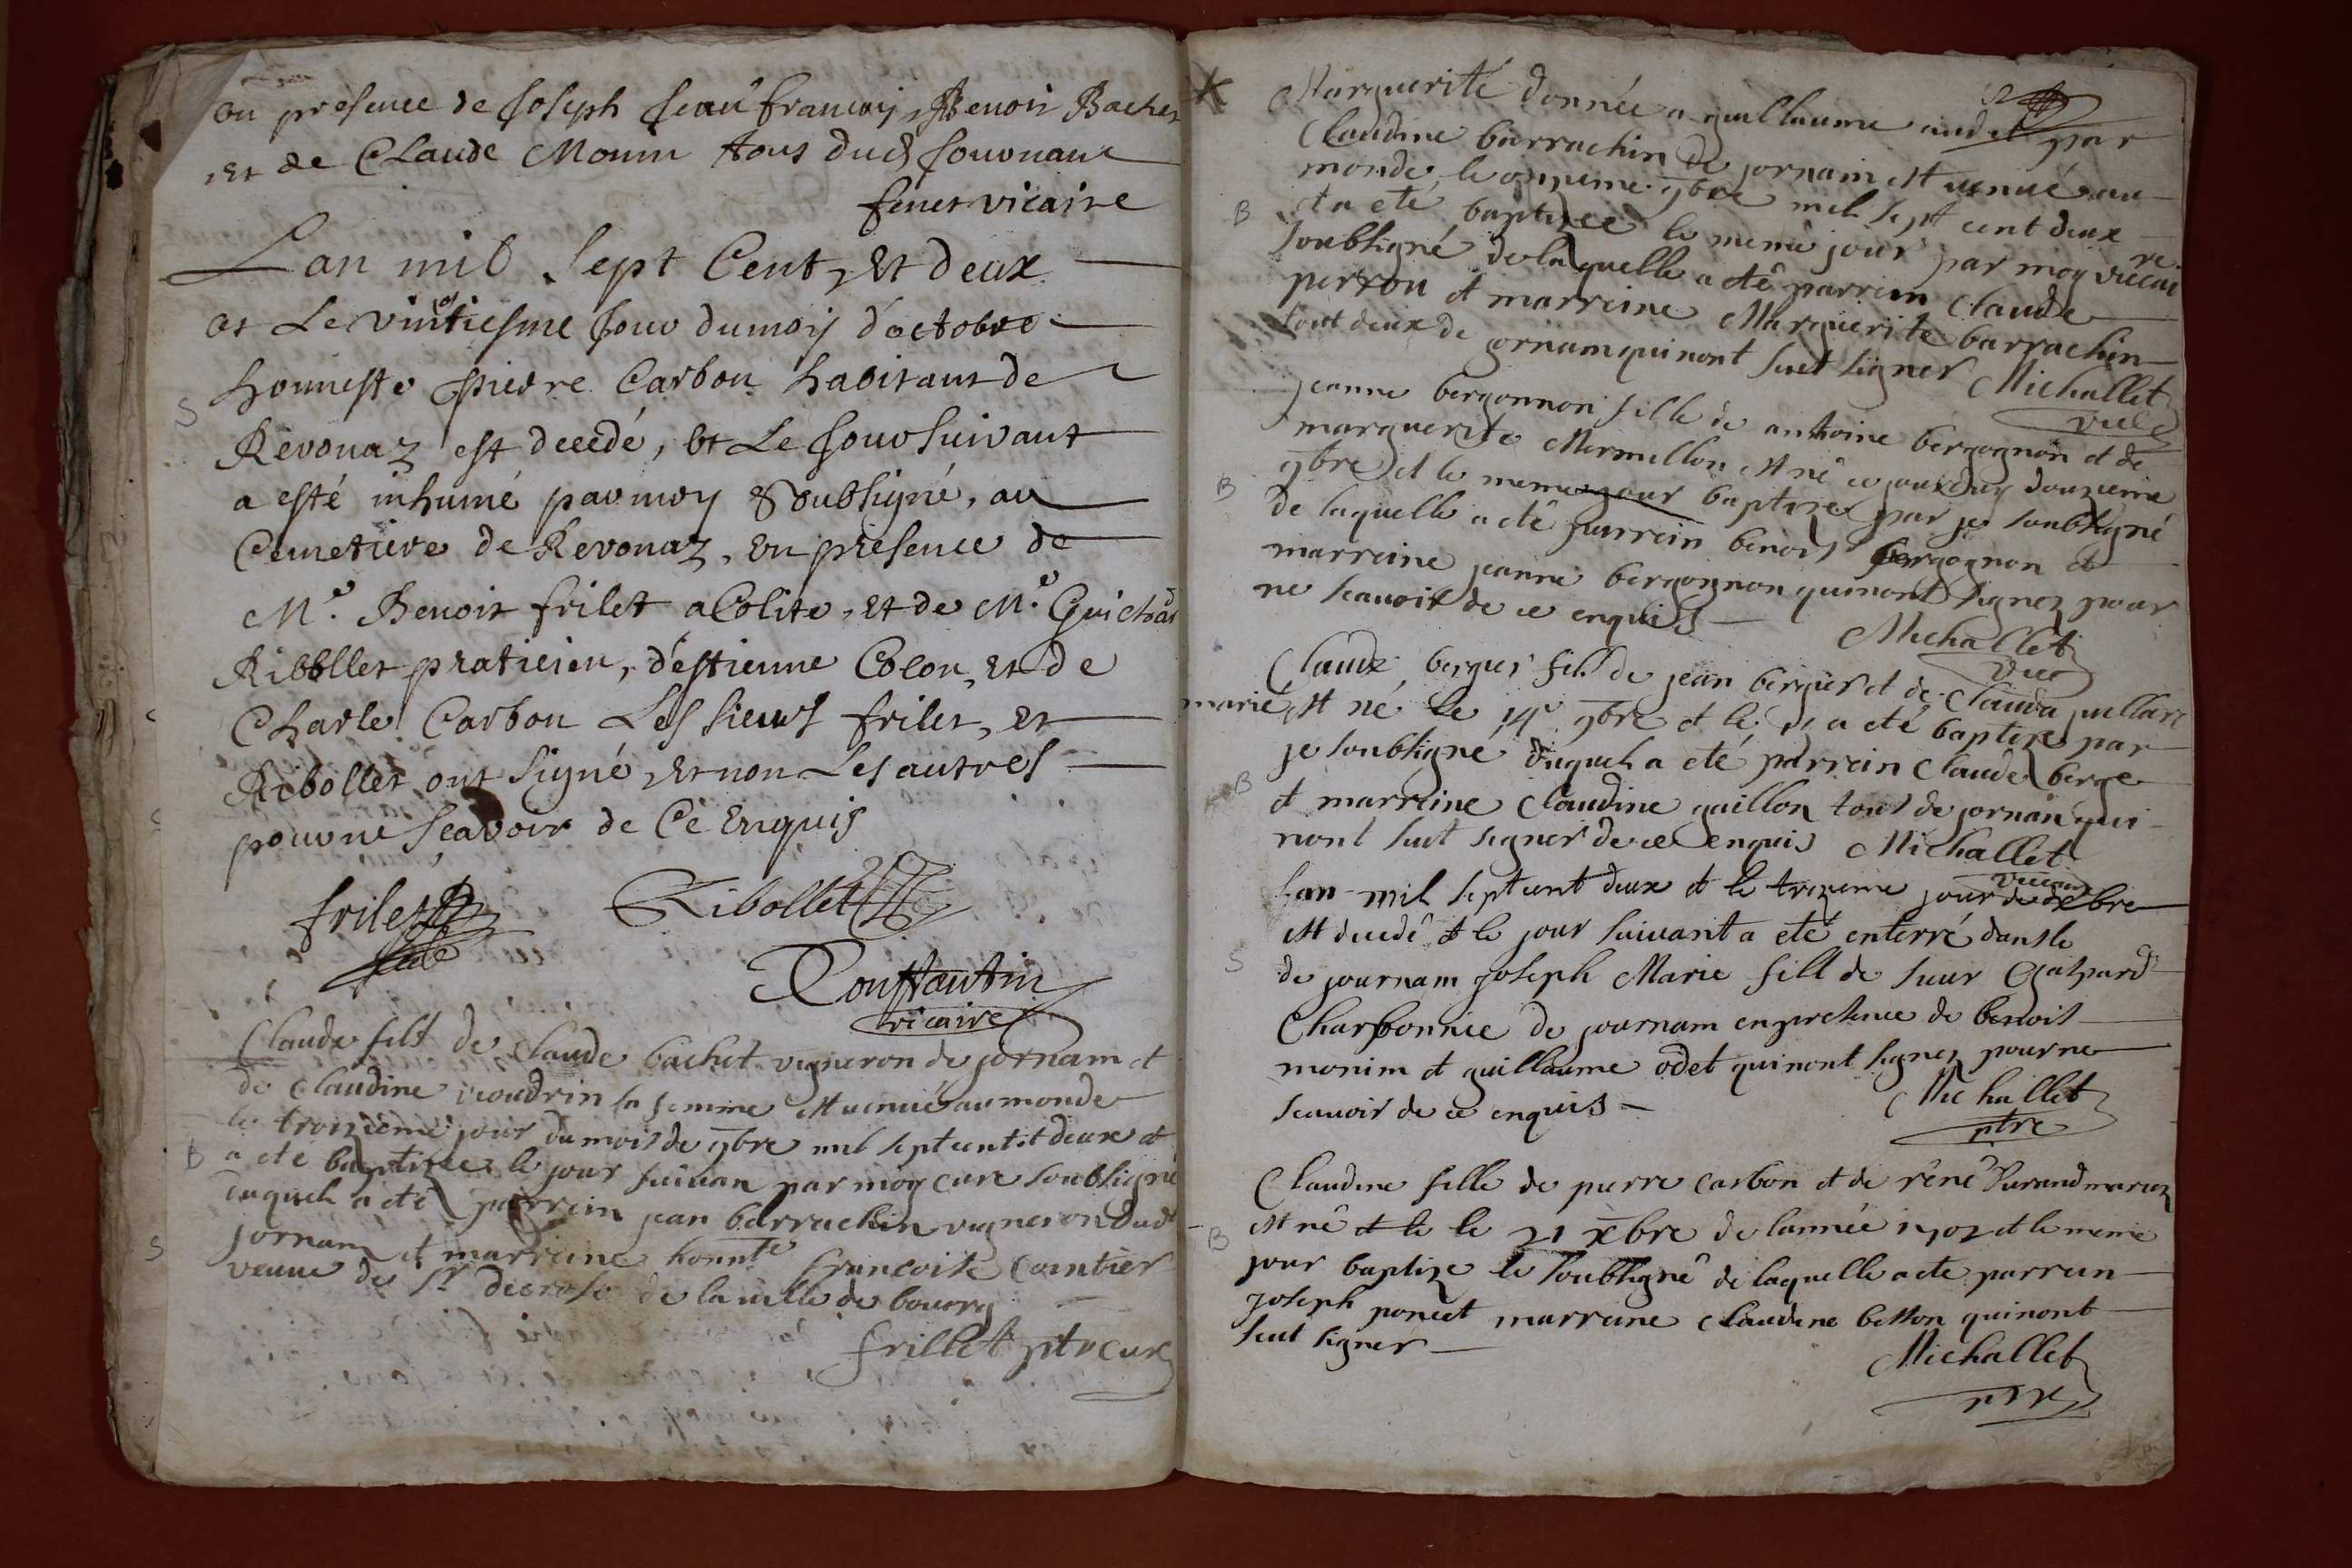 en presence de Joseph Jean francois, Benoit Bachet
et de Claude Monin tous dud Jouvnant
fenet vicaire
Lan mil Sept Cent, Et deux
et Le vintiesme Jour du moij d'octobre
honneste pierre Carbon habitant de
S
Revonaz est decedé, et Le Jour suivant
a esté inhumé par moy Soubsigné, au
Cemetiere de Revonaz, en presence de
Mre. Benoit frilet aColite, et de Mre. Guichard
Ribbllet praticien, d'estienne Colon, et de
Charle Carbon Les sieurs frilet, et
Ribollet ont signé, et non Les autres
pour ne Scavoir de Ce Enquis
frilet Ribollet
Constantin
vicaire
Claude fils de Claude bachet vigneron de jornam et
de Claudine voudrin sa femme est venue au monde
le troizieme jour du mois de 9bre mil sept cent et deux et
B
a ete baptizee le jour suivan par moy cure soubsigne
duquel a ete parrein jean barrachin vigneron dud
S
jornam et marreine honnte francoise Cointier
veuve de Sr decroso de la ville de bourg
frillet ptre cure
Marguerite donnée a guillaume audet par
Claudine barrachin de jornam est venue au
monde le onzieme 9bre mil sept cent deux
B
et a eté baptizee le meme jour par moy viccaire
soubsigné de laquelle a eté parrein Claude
perron et marreine Marguerite barrachin
tout deux de jornam qui nont sceut signer Michallet
vicc
jeanne bergonnon fille de antoine bergognon et de
marguerite Mermillon est né ce jourduy douzieme
B
9bre et le meme jour baptize par je soubsigné
de laquelle a eté parrein benoit bergognon et
marreine jeanne bergognon qui nont signez pour
ne scavoir de ce enquis
Michallet
vicc
Claude berger fils de jean berger et de Clauda
marié est né le 14e 9bre et le a eté baptize par
je soubsigné duquel a eté parrein Claude berge
B
et marreine Claudine gaillon tous de jornan qui
nont sut signer de ce enquis Michallet
viccaire
Lan mil sept cent deux et le trezieme jour de xbre
est decedé et le jour suivant a eté enterré dans le
S
de journam joseph Marie fill de sieur Gaspard
Charbonnie de journam en presence de benoit
monim et guillaume odet qui nont signez pour ne
scavoir de ce enquis
Michallet
ptre
Claudine fille de pierre carbon et de réné Durand mariez
B
est né et le le 21 xbre de lannée 1702 et le meme
jour baptize le soubsigné de laquelle a ete parrein
joseph poncet marreine Claudine besson qui nont
sceut signer
Michallet
ptre